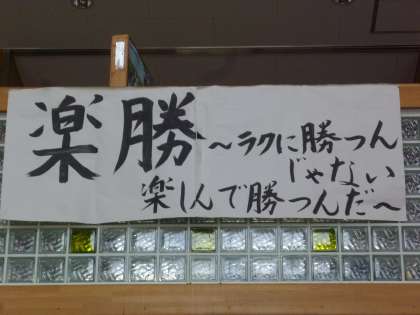 楽勝 ~ラクに勝つん
じゃない
楽しんで勝つんだ~